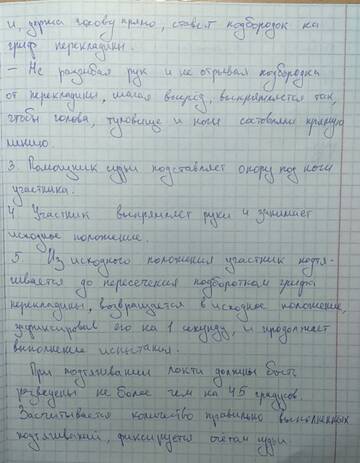 и, держа голову прямо, ставит подбородок на
гриф перекладины.
– Не разгибая рук и не отрывая подбородка
от перекладины, шагая вперёд, выпрямляется так,
чтобы голова, туловище и ноги составляли прямую
линию.
3. Помощник судьи подставляет опору под ноги
участника.
4. Участник выпрямляет руки и занимает
исходное положение.
5. Из исходного положения участник подтя-
гивается до пересечения подбородком грифа
перекладины, возвращается в исходное положение,
зафиксировав его на 1 секунду, и продолжает
выполнение испытания.
При подтягивании локти должны быть
разведены не более чем на 45 градусов.
Засчитывается количество правильно выполненных
подтягиваний, фиксируется счётом судьи